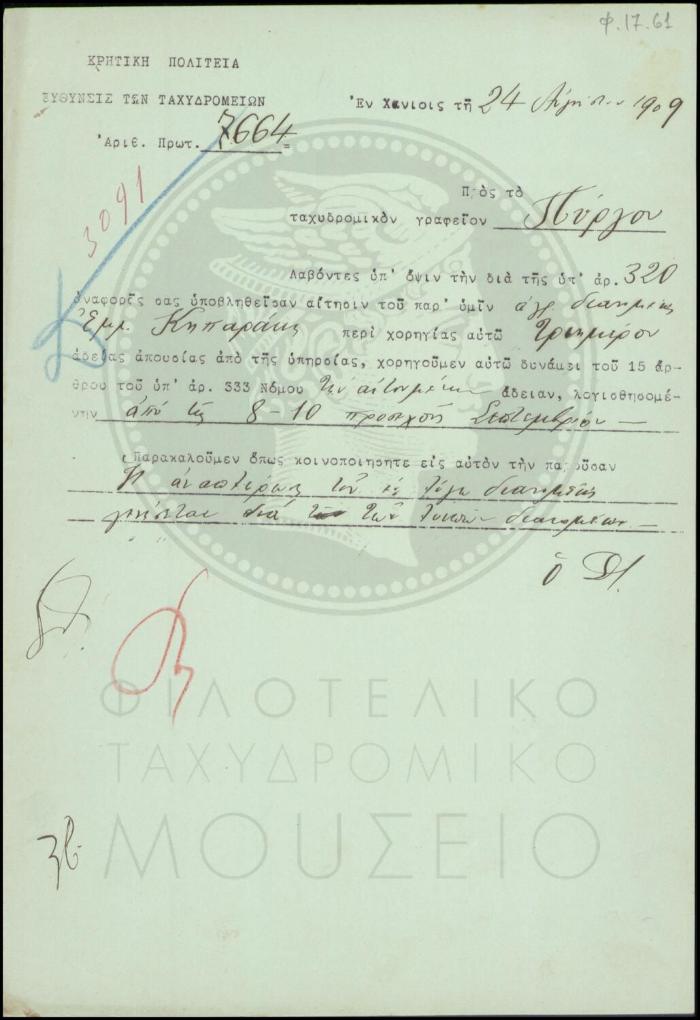 Φ.17.61
ΚΡΗΤΙΚΗ ΠΟΛΙΤΕΙΑ
ΕΥΘΥΝΣΙΣ ΤΩΝ ΤΑΧΥΔΡΟΜΕΙΩΝ
Ἐν Χανίοις τῇ 24 Αὐγούστου 1909
Ἀριθ. Πρωτ. 7664
3091
Πρὸς τὸ
ταχυδρομικὸν γραφεῖον Πύργου
Λαβόντες ὑπ' ὄψιν τὴν διὰ τῆς ὑπ' ἀρ. 320
ἀναφορᾶς σας ὑποβληθεῖσαν αἴτησιν τοῦ παρ' ὑμῖν ἀγρ
Ἐμμ. Κηπαράκη περὶ χορηγίας αὐτῷ τριημέρου
ἀδείας ἀπουσίας ἀπὸ τῆς ὑπηρσίας, χορηγοῦμεν αὐτῷ δυνάμει τοῦ 15 ἄρ-
θρου τοῦ ὑπ' ἀρ. 333 Νόμου τὴν αἰτουμένην ἄδειαν, λογισθησομέ-
νην ἀπὸ τῆς 8-10 προσεχοῦς Σεπτεμβρίου
Παρακαλοῦμεν ὅπως κοινοποιήσητε εἰς αὐτὸν τὴν παροῦσαν
Ἡ τοῦ
διὰ τῶν
ὁ Δ).
ΦΙΛΟΤΕΛΙΚΟ
ΤΑΧΥΔΡΟΜΙΚΟ
ΜΟΥΣΕΙΟ